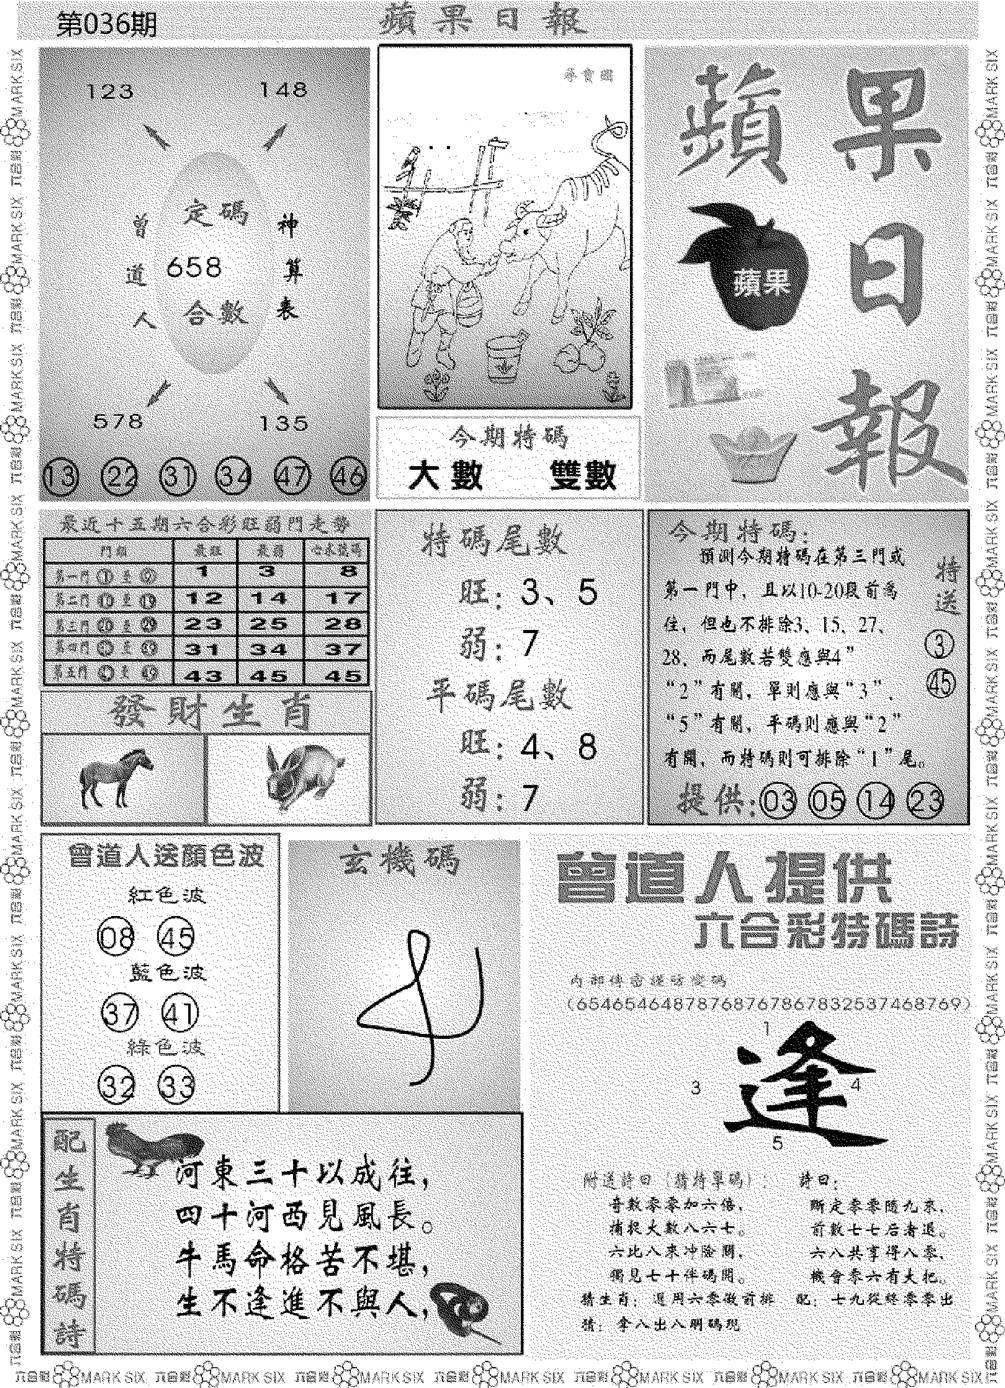 第036期
蘋果日報
123
148
曾道人
定碼
658
合數
神算表
578
135
13 22 31 34 47 46
尋寶圖
今期特碼
大數 雙數
蘋果日報
蘋果
最近十五期六合彩旺弱門走勢
門類 最旺 最弱 心水號碼
第一門 1 至 9 1 3 8
第二門 10 至 19 12 14 17
第三門 20 至 29 23 25 28
第四門 至 31 34 37
第五門 至 49 43 45 45
發財生肖
特碼尾數
旺：3、5
弱：7
平碼尾數
旺：4、8
弱：7
今期特碼：
預測今期特碼在第三門或
第一門中，且以10-20段前為
佳，但也不排除3、15、27、
28、而尾數若雙應與4”
“2”有關，單則應與“3”、
“5”有關，平碼則應與“2”
有關，而特碼則可排除“1”尾。
特送
3
45
提供：03 05 14 23
曾道人送顏色波
紅色波
08 45
藍色波
37 41
綠色波
32 33
玄機碼
曾道人提供
六合彩特碼詩
內部傳密謹防變碼
（65465464878768767867832537468769）
1
逢
3
4
5
附送詩曰（猜特單碼）：
奇數零零加六倍，
捕捉大數八六七。
六比八來冲險關，
獨見七十伴碼開。
猜生肖：選用六零做前排
猜：拿八出八明碼現
詩曰：
斷定零零隨九來，
前數七七后者退。
六八共享得八零，
機會零六有大把。
配：七九從終零零出
配生肖特碼詩
河東三十以成往，
四十河西見風長。
牛馬命格苦不堪，
生不逢進不與人，
六合彩 MARK SIX 六合彩 MARK SIX 六合彩 MARK SIX 六合彩 MARK SIX 六合彩 MARK SIX 六合彩 MARK SIX 六合彩 MARK SIX